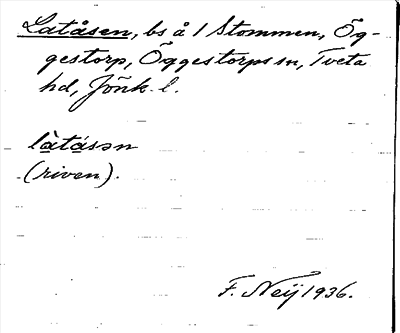 Latåsen, bs å 1 Stommen, Ög-
gestorp, Öggestorps sn, Tveta
hd, Jönk. l.
làtásən
(riven).
F. Neij 1936.